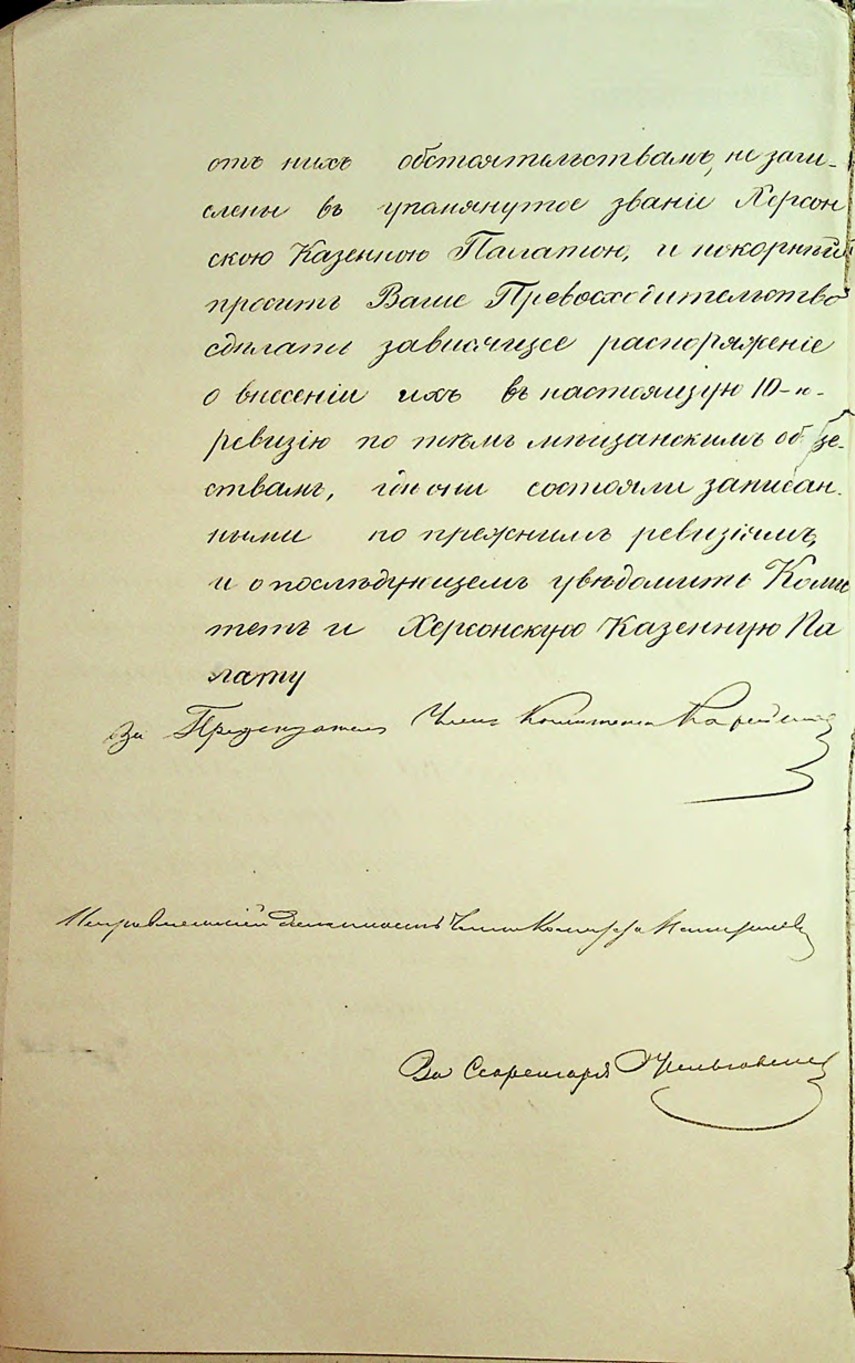 отъ нихъ обстоятельствамъ, не зачи-
слены въ упамянутое званіе Херсон
скою Казенною Палатою, и покорнѣй
просить Ваше Превосходительство
сдѣлать зависящее распоряженіе
о внесеніи ихъ въ настоящую 10-ю
ревизію по тѣмъ мѣщанскимъ обще-
ствамъ, гдѣ они состояли записан-
ными по прежнимъ ревизіямъ,
и о послѣдующемъ увѣдомить Коми
тетъ и Херсонскую Казенную Па
лату
За Предсѣдателя Членъ Комитета
Исправляющій Должность Члена
За Секретаря